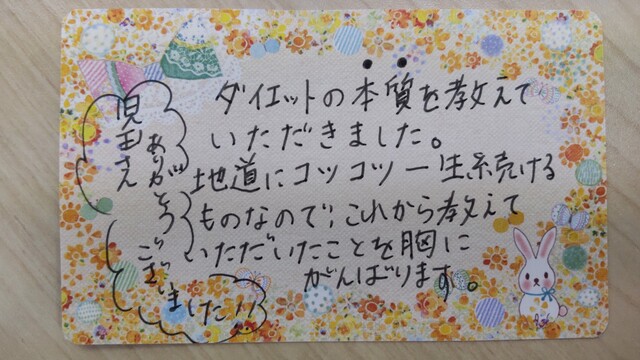 ダイエットの本質を教えて
いただきました。
地道にコツコツ一生続ける
ものなので、これから教えて
いただいたことを胸に
がんばります。
児玉さん
ありがとう
ござい
ました!!